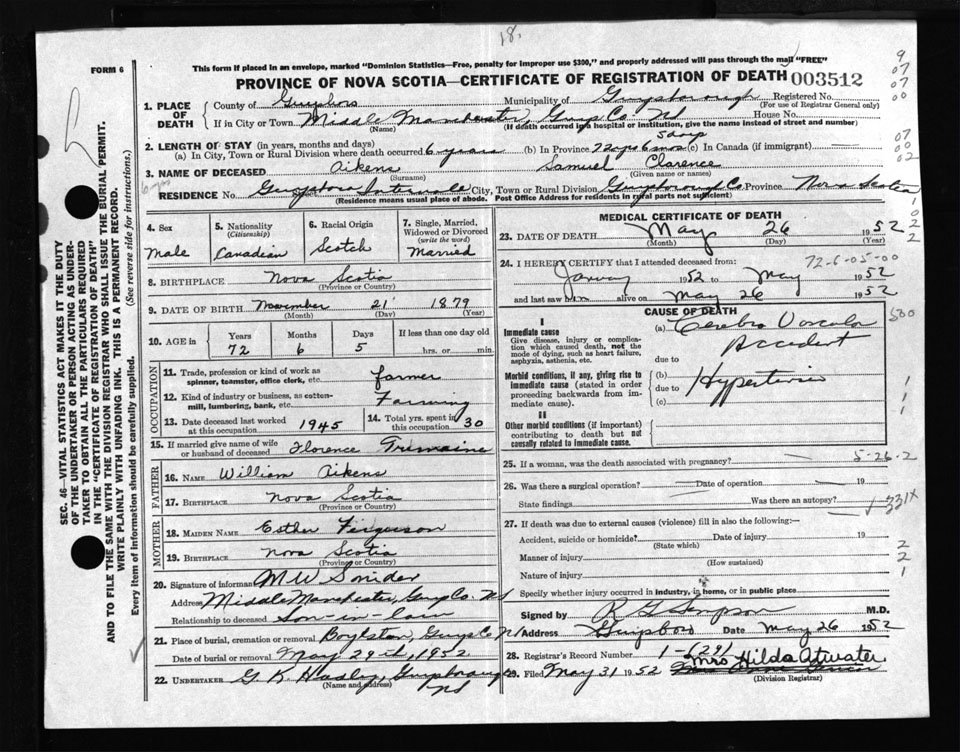 18.
This form if placed in an envelope, marked "Dominion Statistics—Free, penalty for improper use $300," and properly addressed will pass through the mail "FREE"
FORM 6
PROVINCE OF NOVA SCOTIA—CERTIFICATE OF REGISTRATION OF DEATH 003512
1. PLACE OF DEATH
County of Guysboro Municipality of Guysborough Registered No.
(For use of Registrar General only)
If in City or Town Middle Manchester, Guys Co. NS House No.
(Name) (If death occurred in a hospital or institution, give the name instead of street and number)
2. LENGTH OF STAY (in years, months and days)
5 days
(a) In City, Town or Rural Division where death occurred 6 years (b) In Province 72 yrs 6 mos (c) In Canada (if immigrant)
3. NAME OF DECEASED Aikens Samuel Clarence
(Surname) (Given name or names)
RESIDENCE No. Guysboro Intervale City, Town or Rural Division Guysborough Co Province Nova Scotia
(Residence means usual place of abode. Post Office Address for residents in rural parts not sufficient)
4. Sex
Male
5. Nationality
(Citizenship)
Canadian
6. Racial Origin
Scotch
7. Single, Married, Widowed or Divorced
(write the word)
Married
8. BIRTHPLACE Nova Scotia
(Province or Country)
9. DATE OF BIRTH November 21 1879
(Month) (Day) (Year)
10. AGE in Years Months Days If less than one day old
72 6 5 hrs. or min.
OCCUPATION
11. Trade, profession or kind of work as spinner, teamster, office clerk, etc. farmer
12. Kind of industry or business, as cotton-mill, lumbering, bank, etc. Farming
13. Date deceased last worked at this occupation 1945
14. Total yrs. spent in this occupation 30
15. If married give name of wife or husband of deceased Florence Tremaine
FATHER
16. NAME William Aikens
17. BIRTHPLACE Nova Scotia
(Province or Country)
MOTHER
18. MAIDEN NAME Esther Ferguson
19. BIRTHPLACE Nova Scotia
(Province or Country)
20. Signature of informant M W Snider
Address Middle Manchester, Guys Co. NS
Relationship to deceased Son-in-law
21. Place of burial, cremation or removal Boylston, Guys Co NS
Date of burial or removal May 29th, 1952
22. UNDERTAKER G. R. Hadley, Guysborough
(Name and address) NS
MEDICAL CERTIFICATE OF DEATH
23. DATE OF DEATH May 26 1952
(Month) (Day) (Year)
24. I HEREBY CERTIFY that I attended deceased from: 72-6-05-00
January 1952 to May 1952
and last saw him alive on May 26 1952
CAUSE OF DEATH
I
Immediate cause
Give disease, injury or complication which caused death, not the mode of dying, such as heart failure, asphyxia, asthenia, etc.
(a) Cerebro Vascular
Accident
due to
Morbid conditions, if any, giving rise to immediate cause (stated in order proceeding backwards from immediate cause).
(b)
due to Hypertension
(c)
II
Other morbid conditions (if important) contributing to death but not causally related to immediate cause.
25. If a woman, was the death associated with pregnancy? 5-26-2
26. Was there a surgical operation? Date of operation 19
State findings Was there an autopsy? 331X
27. If death was due to external causes (violence) fill in also the following:—
Accident, suicide or homicide? Date of injury 19
(State which)
Manner of injury
(How sustained)
Nature of injury
Specify whether injury occurred in industry, in home, or in public place
Signed by M.D.
Address Guysboro Date May 26 1952
28. Registrar's Record Number
Mrs Hilda Atwater
29. Filed May 31 1952
(Division Registrar)
SEC. 46—VITAL STATISTICS ACT MAKES IT THE DUTY OF THE UNDERTAKER OR PERSON ACTING AS UNDERTAKER TO OBTAIN ALL THE PARTICULARS REQUIRED IN THE "CERTIFICATE OF REGISTRATION OF DEATH" AND TO FILE THE SAME WITH THE DIVISION REGISTRAR WHO SHALL ISSUE THE BURIAL PERMIT.
WRITE PLAINLY WITH UNFADING INK. THIS IS A PERMANENT RECORD.
Every item of information should be carefully supplied. (See reverse side for instructions.)